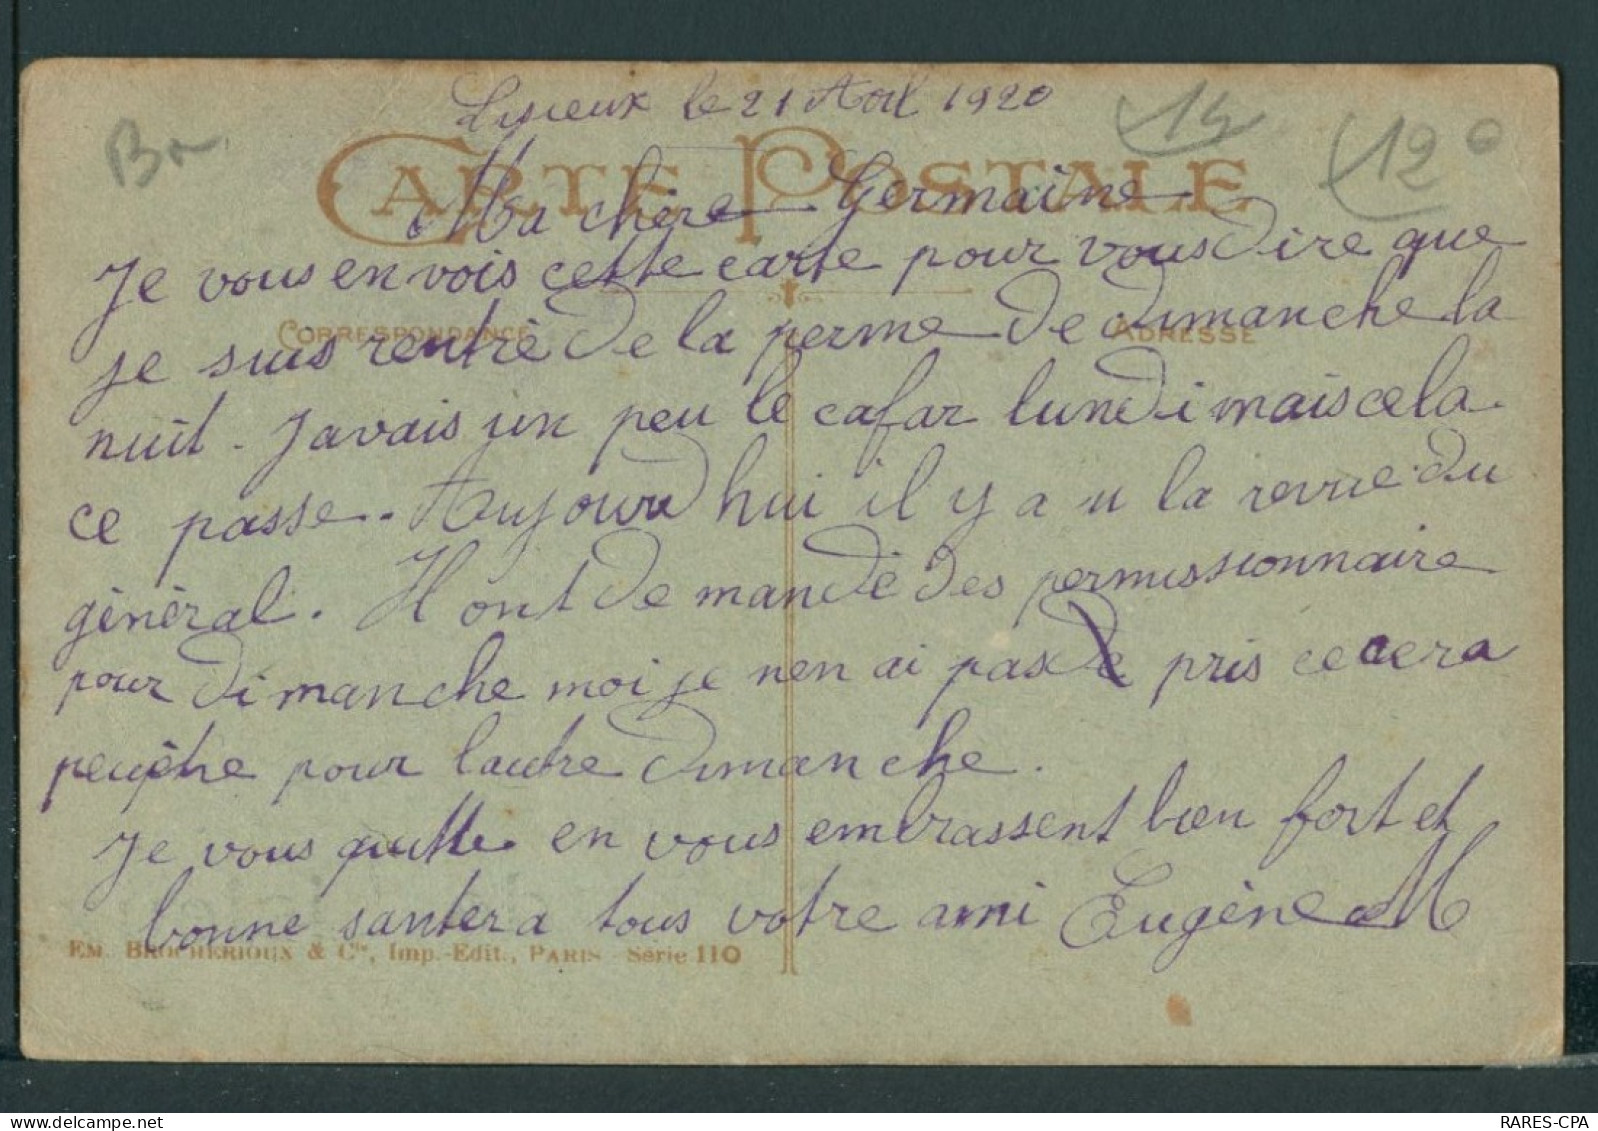 Lisieux le 21 Aout 1920
Br
15
120
CARTE POSTALE
Ma chère Germaine
Je vous en vois cette carte pour vous dire que
CORRESPONDANCE
ADRESSE
je suis rentré de la perme de dimanche la
nuit. Javais un peu le cafar lundi mais cela
ce passe. Aujourd hui il y a u la revue du
général. Il ont de mandé des permissionnaire
pour dimanche moi je nen ai pas pris ce cera
peuêtre pour lautre dimanche.
Je vous quitte en vous embrassent bien fort et
bonne santer a tous votre ami Eugène M
EM. BROCHERIOUX & Cie, Imp.-Edit., PARIS Série 110
RARES-CPA